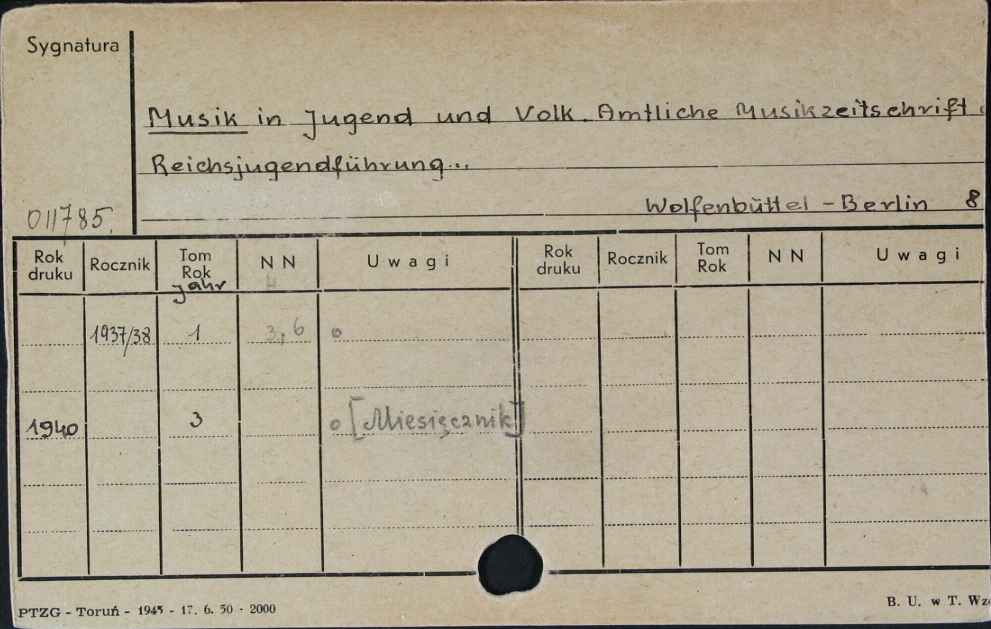 Sygnatura
Musik in Jugend und Volk. Amtliche Musikzeitschrift
Reichsjugendführung...
Wolfenbüttel - Berlin 8
011785.
Rok druku Rocznik Tom Rok Jahr N N U w a g i Rok druku Rocznik Tom Rok N N U w a g i
1937/38 1 3, 6 o
1940 3 o [Miesięcznik]
PTZG - Toruń - 1945 - 17. 6. 50 - 2000
B. U. w T. Wz